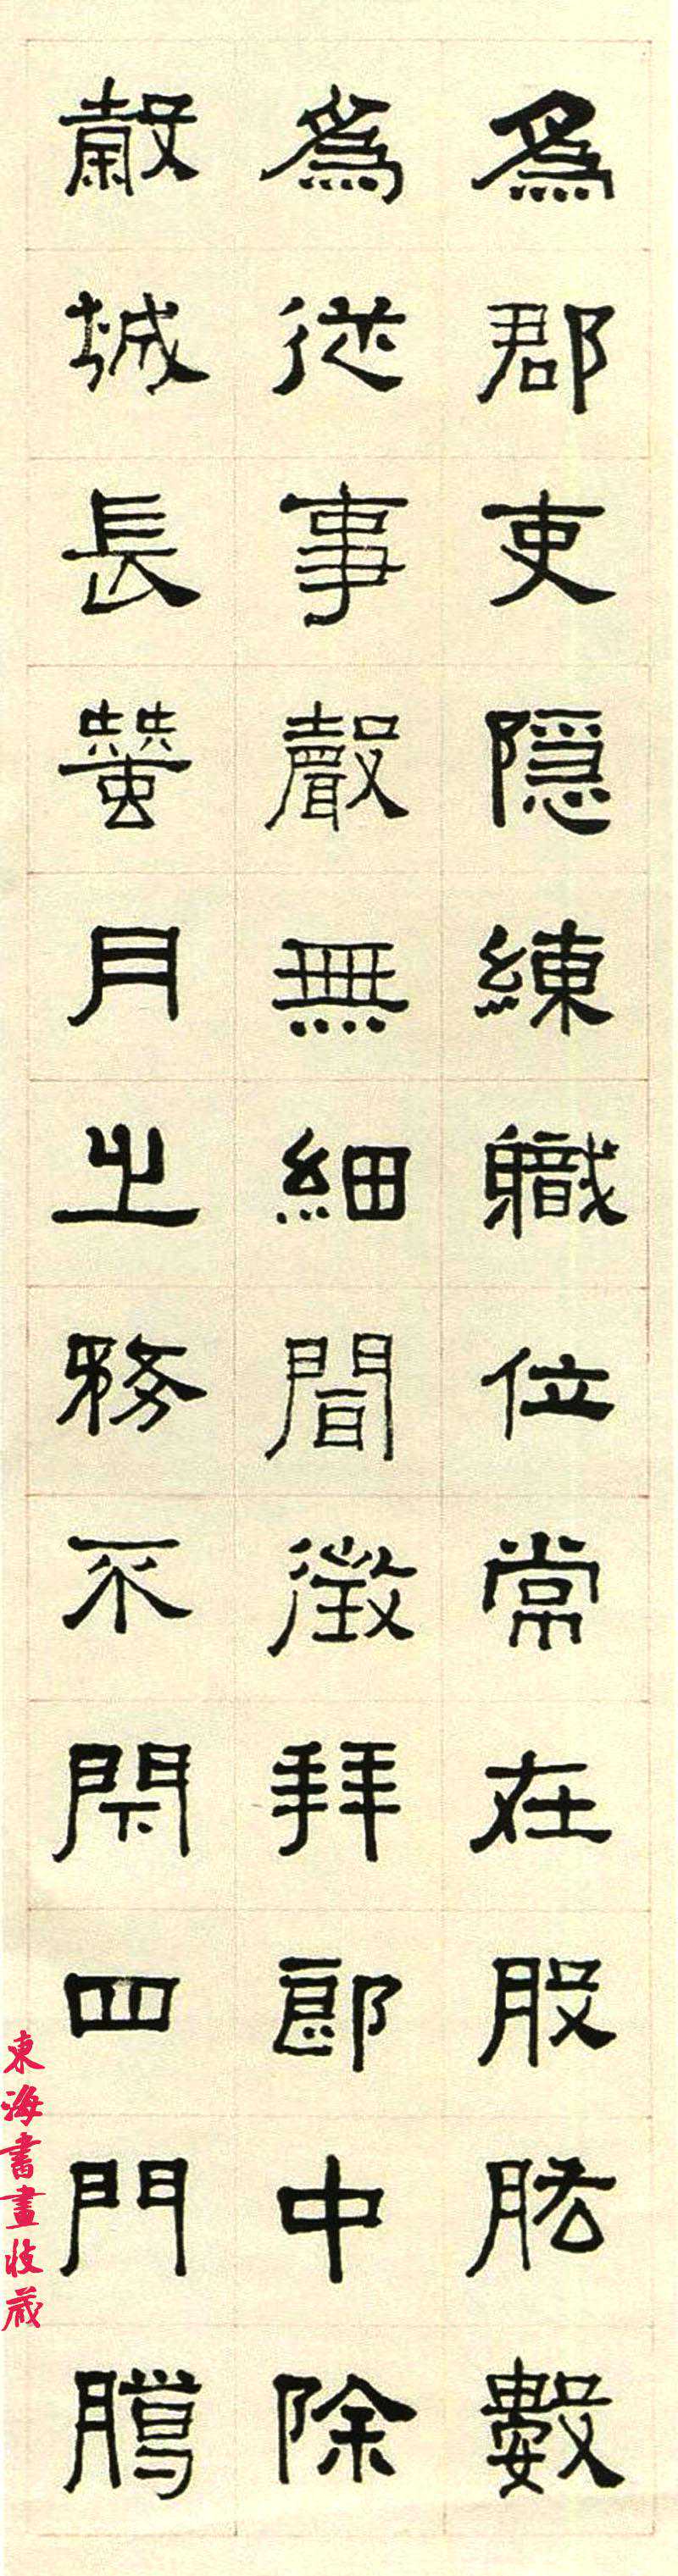 為郡吏隱練職位常在股肱數
為從事聲無細聞徵拜郎中除
穀城長蠶月之務不閉四門臘
東海書畫收藏